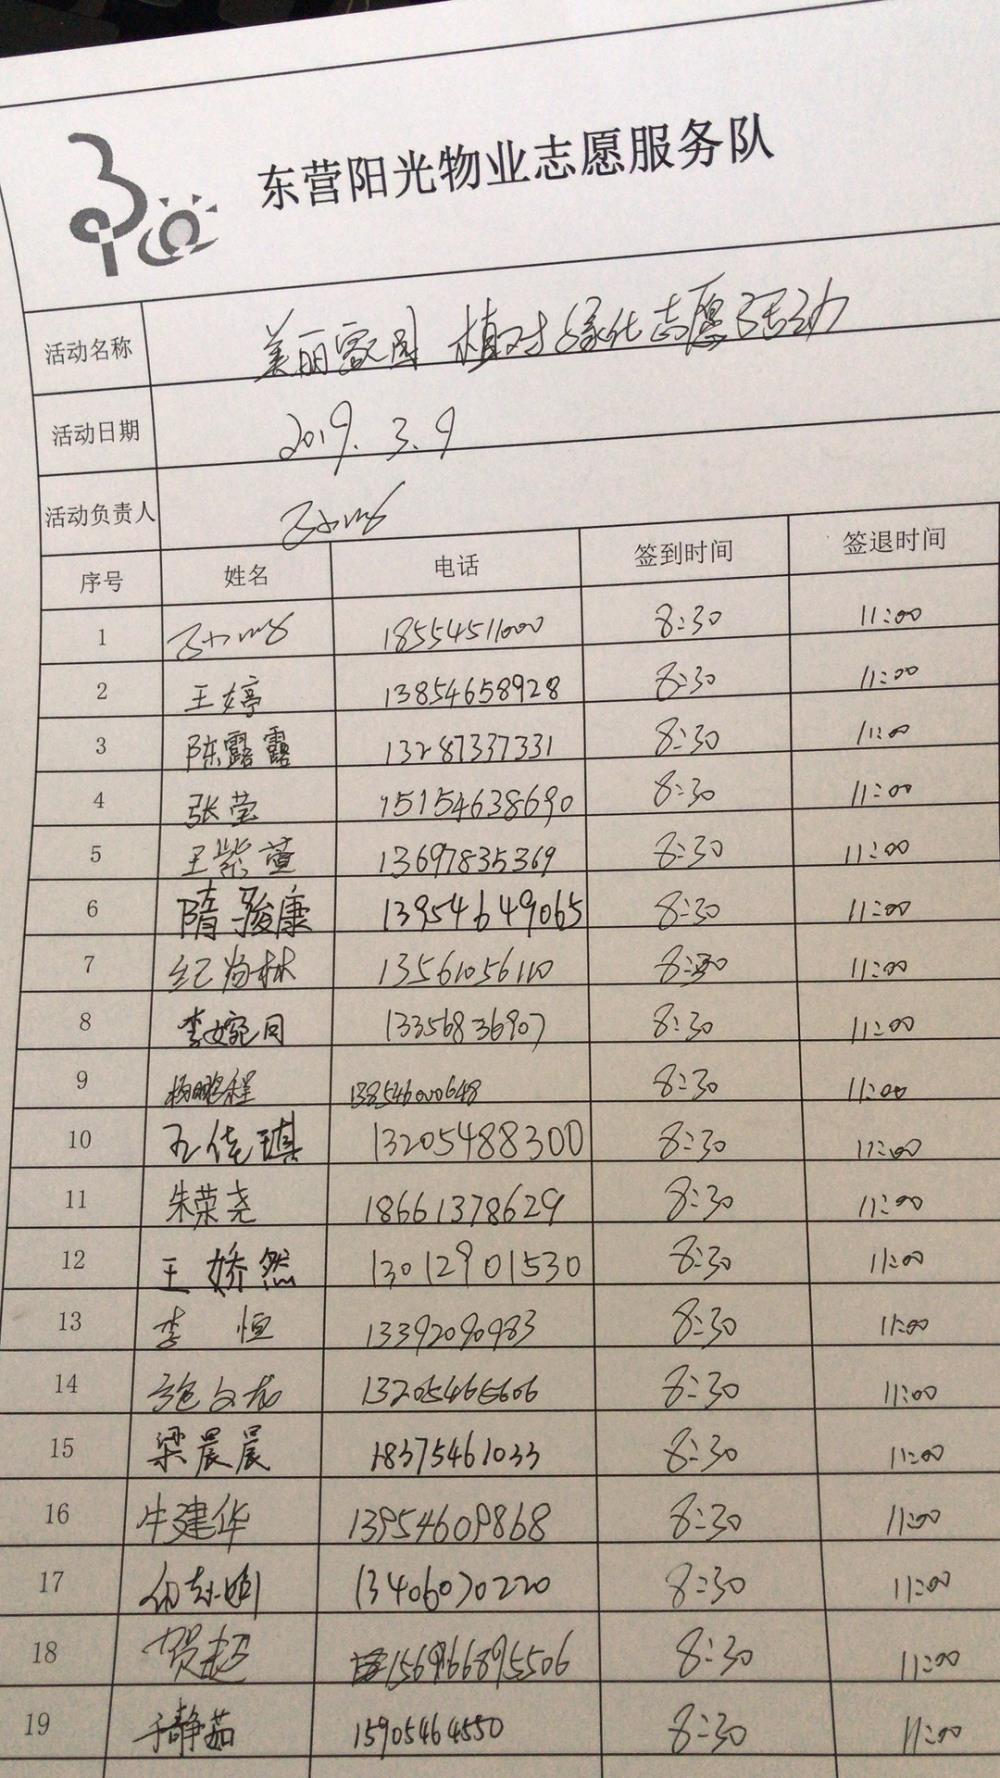 东营阳光物业志愿服务队
活动名称 美丽家园 植树绿化志愿活动
活动日期 2019.3.9
活动负责人
序号 姓名 电话 签到时间 签退时间
1 18554511000 8:30 11:00
2 王婷 13854658928 8:30 11:00
3 陈露露 13287337331 8:30 11:00
4 张莹 15154638690 8:30 11:00
5 王紫萱 13697835369 8:30 11:00
6 隋骏康 13954649065 8:30 11:00
7 纪尚林 13561056110 8:30 11:00
8 李婉同 13356836907 8:30 11:00
9 杨鹏程 13854600648 8:30 11:00
10 孔佳琪 13205488300 8:30 11:00
11 朱荣尧 18661378629 8:30 11:00
12 王娇然 13012901530 8:30 11:00
13 李恒 13392090983 8:30 11:00
14 8:30 11:00
15 梁晨晨 18375461033 8:30 11:00
16 牛建华 13954609868 8:30 11:00
17 13406070220 8:30 11:00
18 贺超 8:30 11:00
19 于静茹 15905464550 8:30 11:00